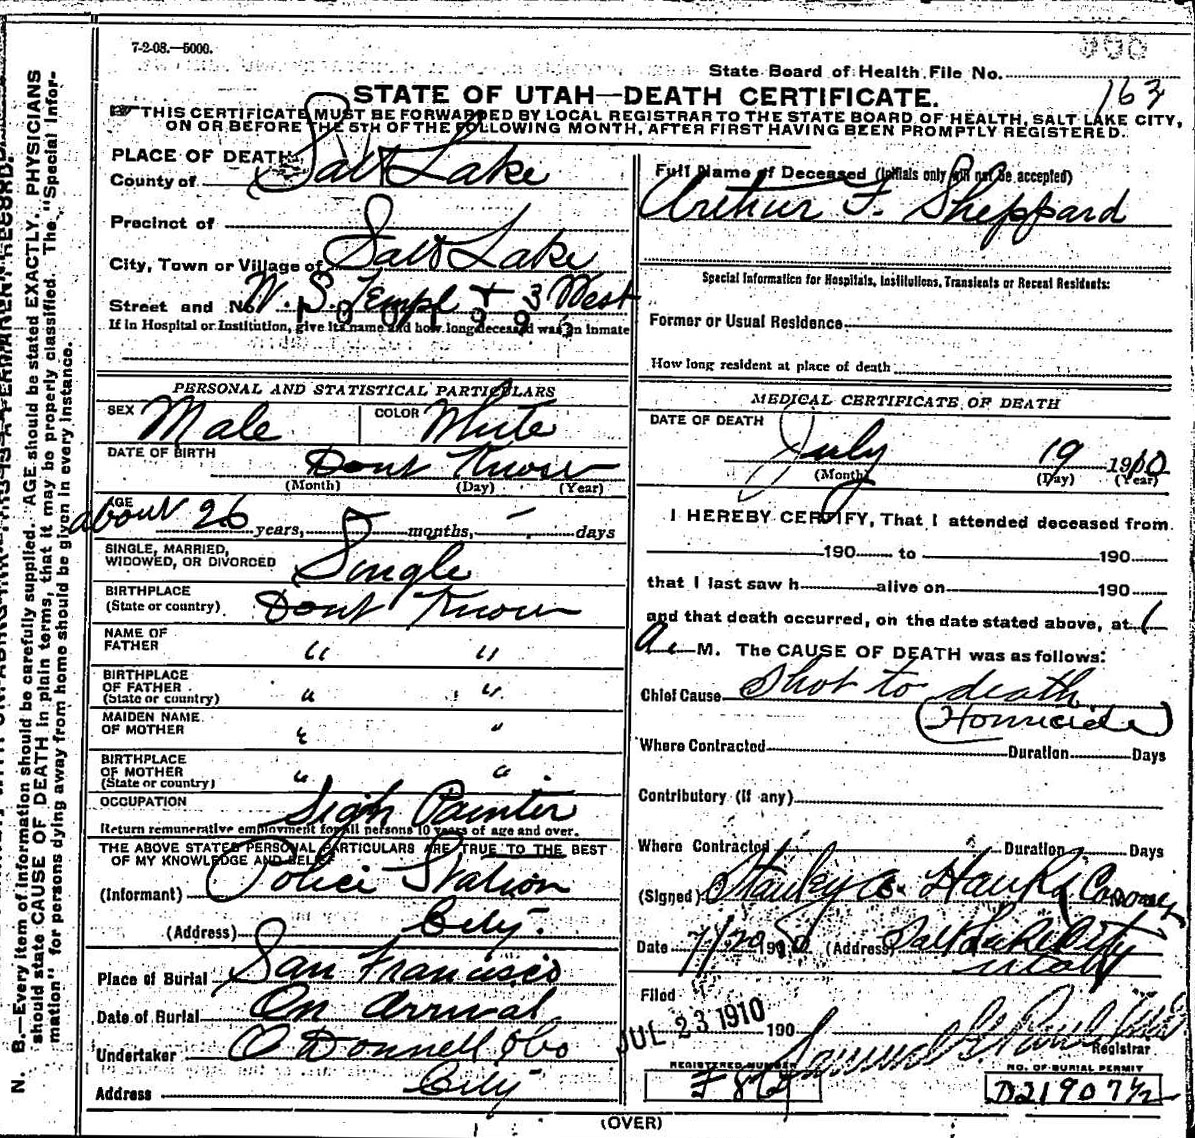 7-2-08.—5000.
State Board of Health File No.
163
STATE OF UTAH—DEATH CERTIFICATE.
THIS CERTIFICATE MUST BE FORWARDED BY LOCAL REGISTRAR TO THE STATE BOARD OF HEALTH, SALT LAKE CITY,
ON OR BEFORE THE 5TH OF THE FOLLOWING MONTH, AFTER FIRST HAVING BEEN PROMPTLY REGISTERED.
PLACE OF DEATH
County of Salt Lake
Precinct of
City, Town or Village of Salt Lake
Street and No. W. S. Templ + 3 West
If in Hospital or Institution, give its name and how long deceased was an inmate
PERSONAL AND STATISTICAL PARTICULARS
SEX Male COLOR White
DATE OF BIRTH Dont Know
(Month) (Day) (Year)
AGE about 26 years, — months, — days
SINGLE, MARRIED,
WIDOWED, OR DIVORCED Single
BIRTHPLACE
(State or country) Dont Know
NAME OF
FATHER " "
BIRTHPLACE
OF FATHER
(State or country) " "
MAIDEN NAME
OF MOTHER " "
BIRTHPLACE
OF MOTHER
(State or country) " "
OCCUPATION Sign Painter
Return remunerative employment for all persons 10 years of age and over.
THE ABOVE STATED PERSONAL PARTICULARS ARE TRUE TO THE BEST
OF MY KNOWLEDGE AND BELIEF
(Informant) Police Station
(Address) City.
Place of Burial San Francisco
Date of Burial On arrival
Undertaker O Donnell & Co
Address City
Full Name of Deceased (Initials only will not be accepted)
Arthur F. Sheppard
Special Information for Hospitals, Institutions, Transients or Recent Residents:
Former or Usual Residence
How long resident at place of death
MEDICAL CERTIFICATE OF DEATH
DATE OF DEATH
July 19 1910
(Month) (Day) (Year)
I HEREBY CERTIFY, That I attended deceased from
190 to 190
that I last saw h alive on 190
and that death occurred, on the date stated above, at 1
A. M. The CAUSE OF DEATH was as follows:
Chief Cause Shot to death
(Homicide)
Where Contracted Duration Days
Contributory (if any)
Where Contracted Duration Days
(Signed) Stanley A. Hanks Coroner
Date 7/20 190 (Address) Salt Lake City
Utah
Filed JUL 23 1910 190
Samuel G. Paul
Registrar
REGISTERED NUMBER
NO. OF BURIAL PERMIT
D21907½
(OVER)
N. B.—Every item of information should be carefully supplied. AGE should be stated EXACTLY. PHYSICIANS
should state CAUSE OF DEATH in plain terms, that it may be properly classified. The "Special Infor-
mation" for persons dying away from home should be given in every instance.